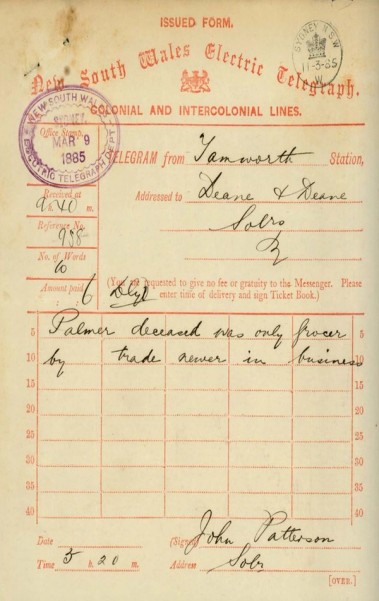 ISSUED FORM.
SYDNEY N.S.W
11-3-85
W
New South Wales Electric Telegraph.
COLONIAL AND INTERCOLONIAL LINES.
NEW SOUTH WALES
SYDNEY
MAR 9
1885
ELECTRIC TELEGRAPH DEPT
Office Stamp.
TELEGRAM from Tamworth Station,
Received at
9 h. 40 m.
Addressed to Deane & Deane
Solrs
Reference No.
958
No. of Words
10
Amount paid
(You are requested to give no fee or gratuity to the Messenger. Please
enter time of delivery and sign Ticket Book.)
5 Palmer deceased was only grocer 5
10 by trade never in business 10
15 15
20 20
25 25
30 30
35 35
40 40
Date
(Signed) John Patterson
Time 5 h. 20 m.
Address Solr
[OVER.]